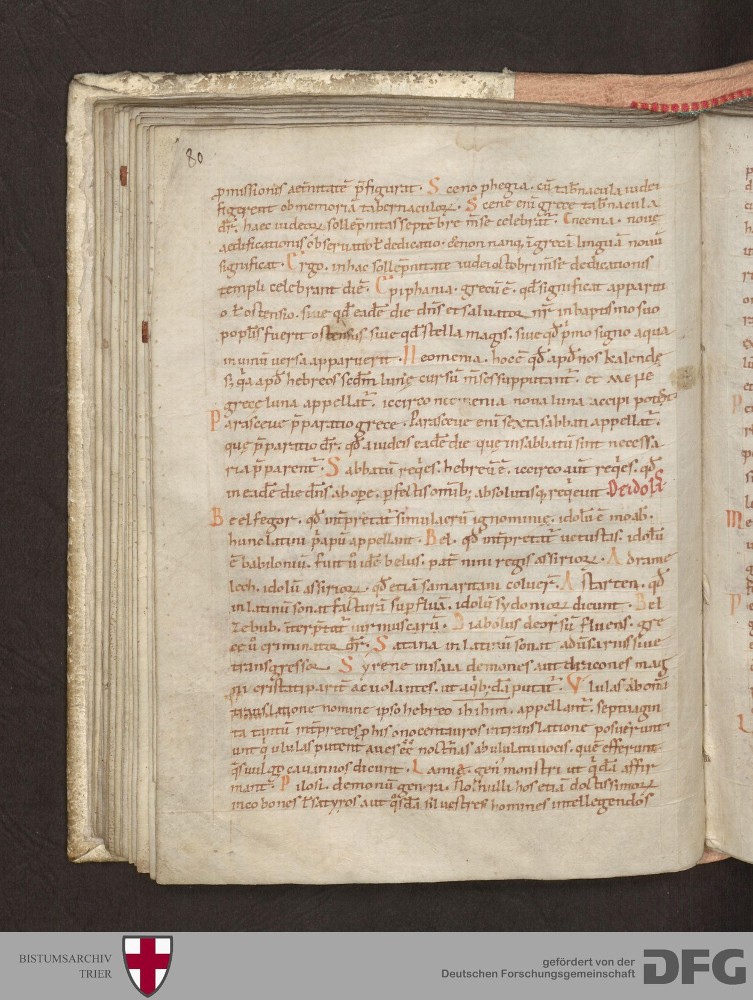 80
ꝓmissionis aeṫnitatē p̄figurat · Sceno phegia · cū tab̄nacula iudei
figerent ob memoriā tabernaculoꝝ · Scene enī grece tab̄nacula
dr̄ · haec iudeoꝝ sollēpnitas septēbre m̄se celebrat̄ · Encenia · noue
aedificationis observatio ł dedicatio · cenon nanq̨ ī grecā linguā nouū
significat · Ergo · in hac sollēpnitate iudei octobri m̄se dedicationis
templi celebrant diē · Epiphania · grecū ē · qđ significat apparit
o ł ostensio · siue qđ eadē die dn̄s et saluator nr̄ in baptismo suo
poplis fuerit ostensus siue qđ stella magis · siue qđ p̄mo signo aqua
in uinū uersa apparuerit · Neomenia · hoc ē qđ apđ nos kalendę
s; q̇a apđ hebreos scđm lunę cursū m̄ses supputant̄ · et
grece luna appellat̄ · iccirco neomenia noua luna accipi potest
Parasceue p̄paratio grece · Parasceue enī sexta sabbati appellat̄ ·
que p̄paratio dr̄ · qđ a iudeis eadē die que in sabbatū sint necessa
ria p̄parent̄ · Sabbatū reqͥes · hebreū ē · iccirco aut̄ reqͥes · qđ
in eadē die dn̄s · ab ope · pfectis omīb; absolutisq; reqͥeuit · De idolis
Beelfegor · qđ int̄pretat̄ simulacrū ignominię · idolū ē moab ·
hunc latini p̄apū appellant · Bel · qđ int̄pretat̄ uetustas · idolū
ē babilonių · fuit ů idē belus · pat̄ nini regis assirioꝝ · Adrame
lech · idolū assirioꝝ · qđ etiā samaritani coluer̄ · Astarten · qđ
in latinū sonat facturā supfluā · idolū sydonioꝝ dicunt · Bel
zebub · īterp̄tat̄ uir muscarū · Diabolus deorsū fluens · gre
ce ů criminator dr̄ · Satana in latinū sonat adūsarius siue
transgressor · Syrene in isaia demones aut dracones mag
ni cristati parit̄ ac uolantes · ut aqͥb;dā putat̄ · Ululas ab omī
translatione nomine ipso hebreo ihihim · appellant̄ · septuagin
ta tantū int̄pretes p his onocentauros in translatione posuerunt
sunt q ululas putent aues eē nocťnas ab ululatu uocis · quē efferunt
qͣs uulgo cauannos dicunt · Lamię · gen̄ monstri ut qͥdā affir
mant̄ · Pilosi · demonū genera · Nonnulli hos etiā doctissimoꝝ
incobones ł satyros aut qͦsdā siluestres homines intellegendos
BISTUMSARCHIV
TRIER
gefördert von der
Deutschen Forschungsgemeinschaft
DFG